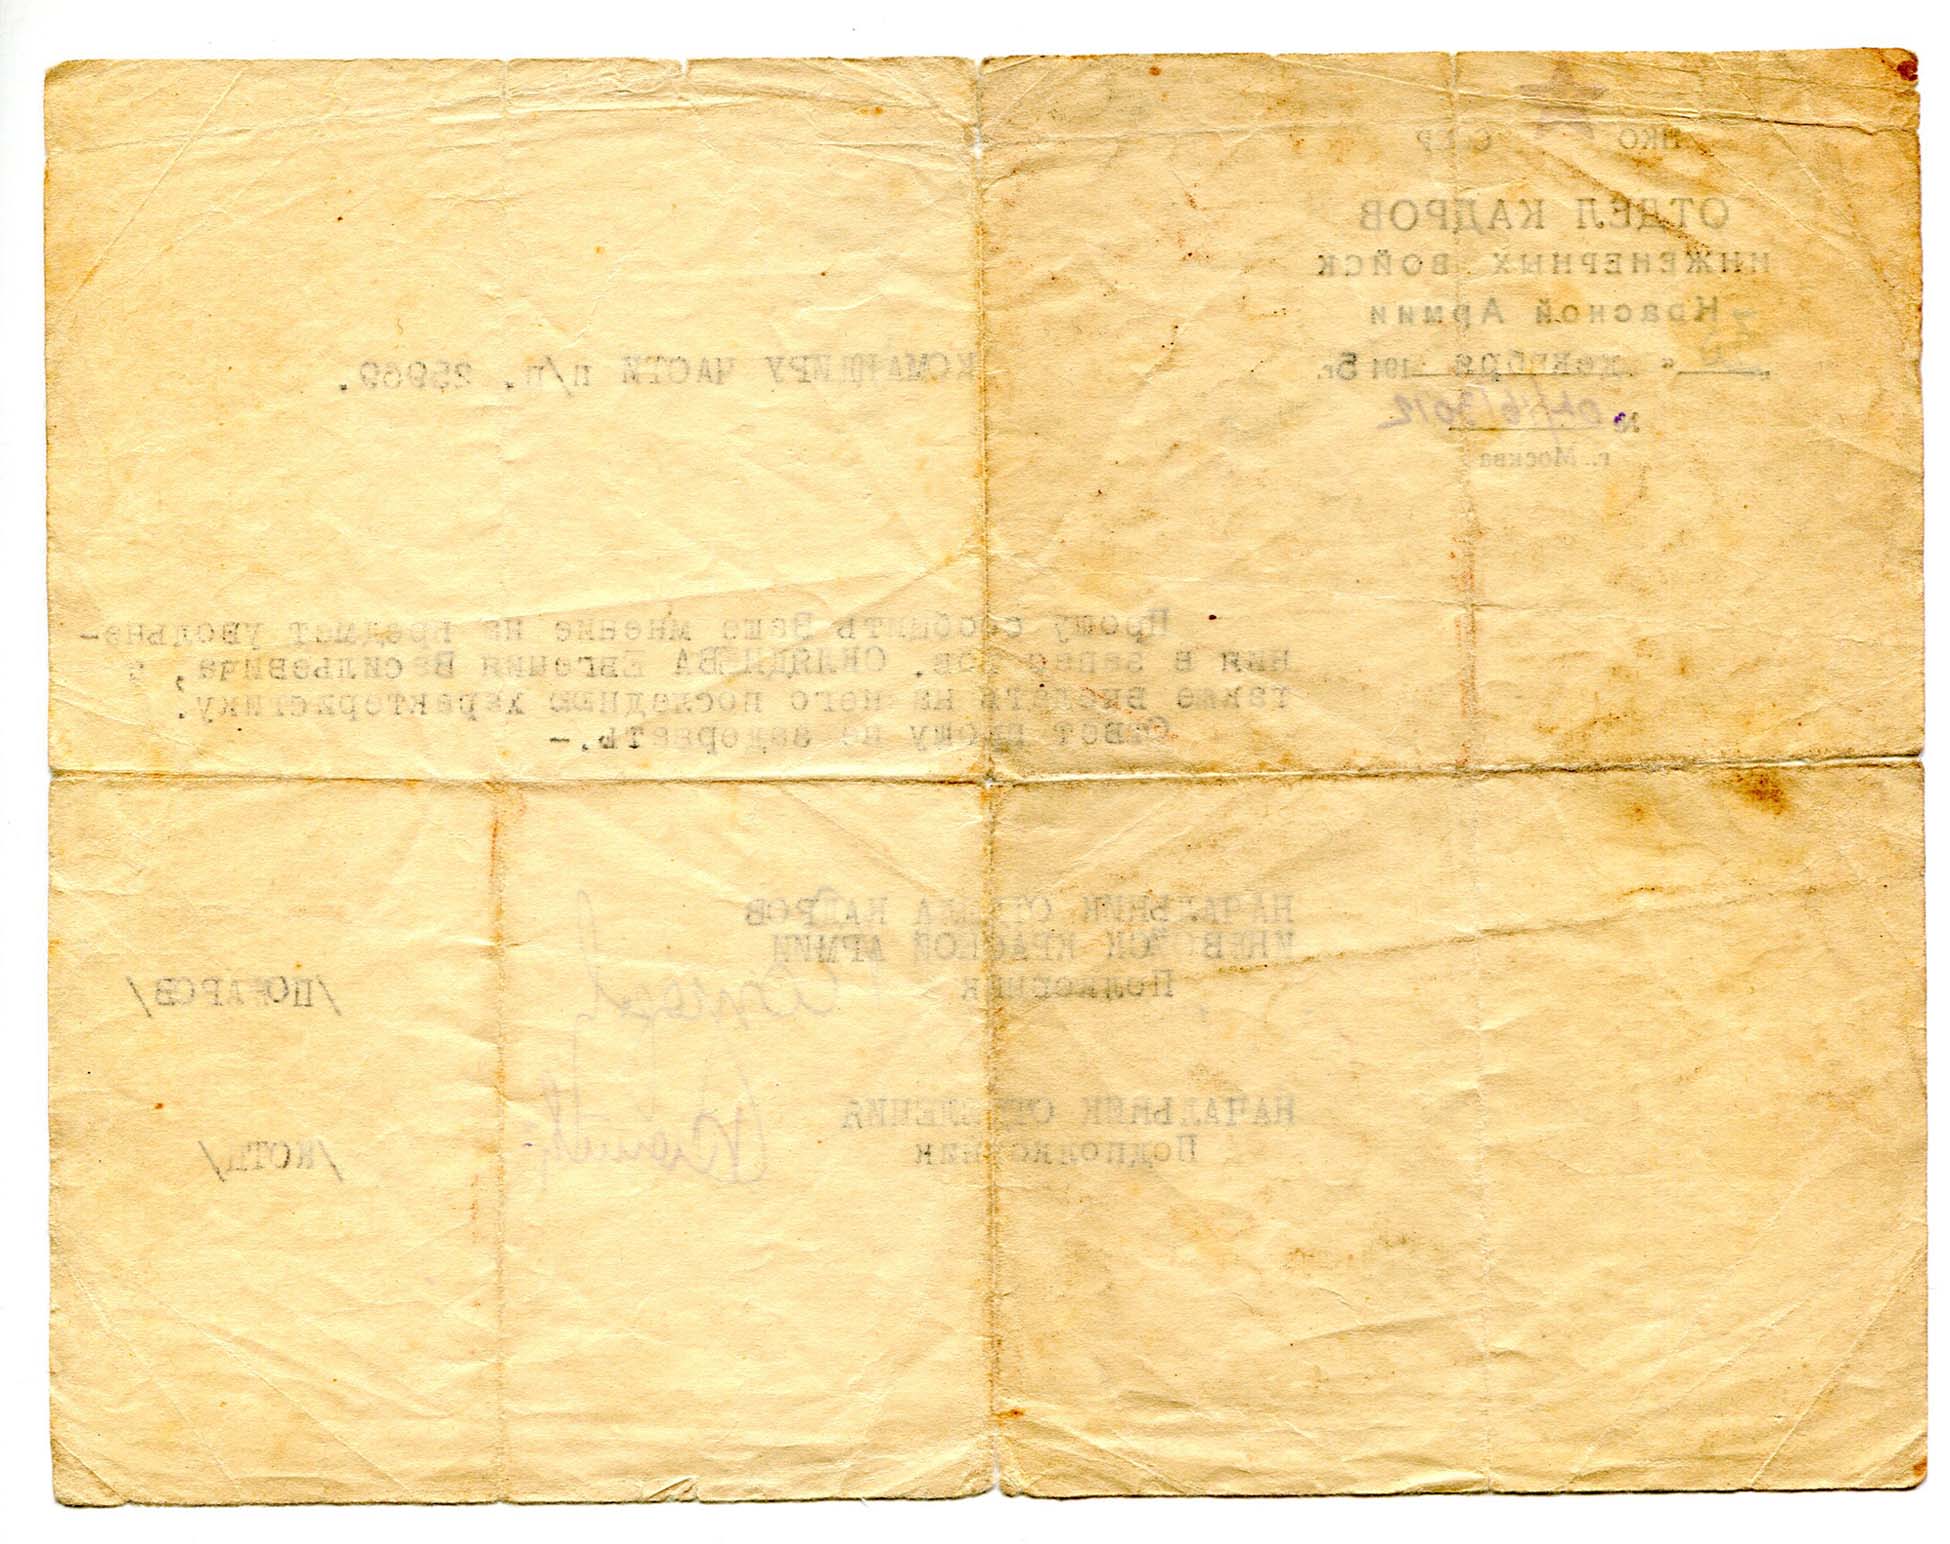 НКО СССР
ОТДЕЛ КАДРОВ
ИНЖЕНЕРНЫХ ВОЙСК
Красной Армии
" " декабря 1945 г.
№
г. Москва
КОМАНДИРУ ЧАСТИ п/п. 25969.
Прошу сообщить Ваше мнение на предмет увольне-
ния в запас тов. Евгения Васильевича, а
также выслать на него последнюю характеристику.
Ответ прошу не задержать.-
НАЧАЛЬНИК ОТДЕЛА КАДРОВ
ИНЖВОЙСК КРАСНОЙ АРМИИ
Полковник
НАЧАЛЬНИК ОТДЕЛЕНИЯ
Подполковник